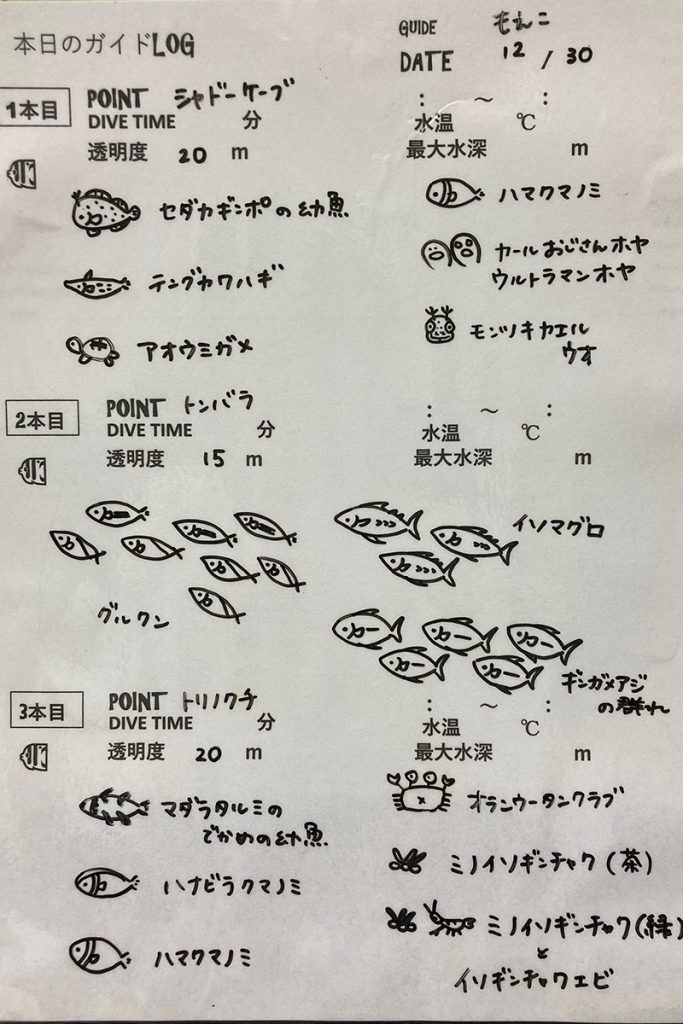 本日のガイドLOG
GUIDE もえこ
DATE 12 / 30
1本目 POINT シャドーケーブ : ～ :
DIVE TIME 分 水温 ℃
透明度 20 m 最大水深 m
セダカギンポの幼魚
ハマクマノミ
テングカワハギ
カールおじさんホヤ
ウルトラマンホヤ
アオウミガメ
モンツキカエル
ウオ
2本目 POINT トンバラ : ～ :
DIVE TIME 分 水温 ℃
透明度 15 m 最大水深 m
イソマグロ
グルクン
ギンガメアジ
の群れ
3本目 POINT トリノクチ : ～ :
DIVE TIME 分 水温 ℃
透明度 20 m 最大水深 m
マダラタルミの
でかめの幼魚
オランウータンクラブ
ハナビラクマノミ
ミノイソギンチャク(茶)
ハマクマノミ
ミノイソギンチャク(緑)
と
イソギンチャクエビ